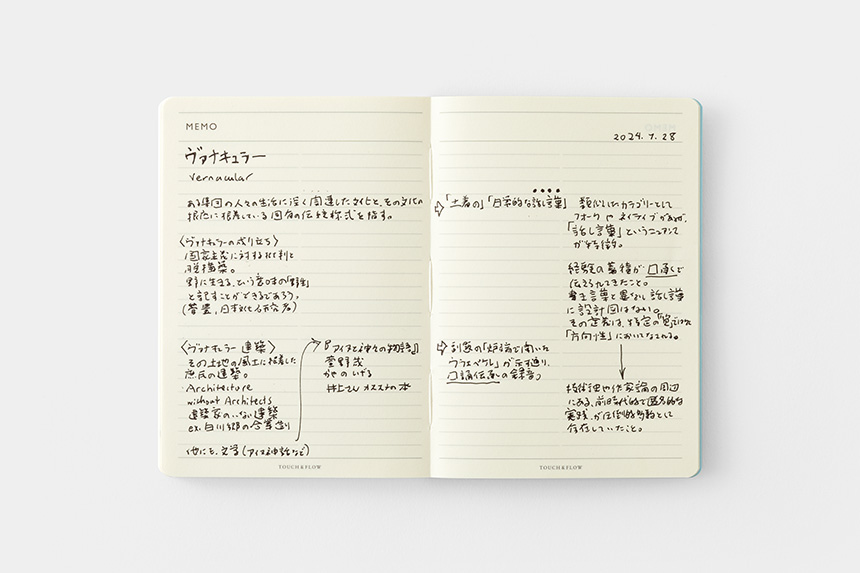 MEMO
ヴァナキュラー
vernacular
ある集団の人々の生活に深く関連した文化と、その文化の
根底に根差している固有の伝統様式を指す。
〈ヴァナキュラーの成り立ち〉
国家主義に対する批判と
脱構築。
野に生きる、という意味の「野生」
と記すことができるであろう。
(菅豊, 日本文化研究者)
〈ヴァナキュラー建築〉
その土地の風土に根差した
庶民の建築。
Architecture
without Architects
建築家のいない建築
ex. 白川郷の合掌造り
他にも、文学(アイヌ神話など)
『アイヌと神々の物語』
萱野茂
かやの しげる
井上さん オススメの本
TOUCH & FLOW
2024. 7. 28
「土着の」「日常的な話し言葉」
類似したカテゴリーとして
フォーク や ネイティブがあるが、
「話し言葉」というニュアンス
が特徴。
経験の蓄積が口承で
伝えられてきたこと。
書き言葉と異なし 話し言葉
に設計図はない。
その定義は、特定の
「方向性」においてなされる。
副題の「炉端で聞いた
ウウェペケレ」が示す通り、
口誦伝承の録音。
技術史や作家論の周辺
にある、前時代的で匿名的な
実践が圧倒的多数として
存在していたこと。
TOUCH & FLOW